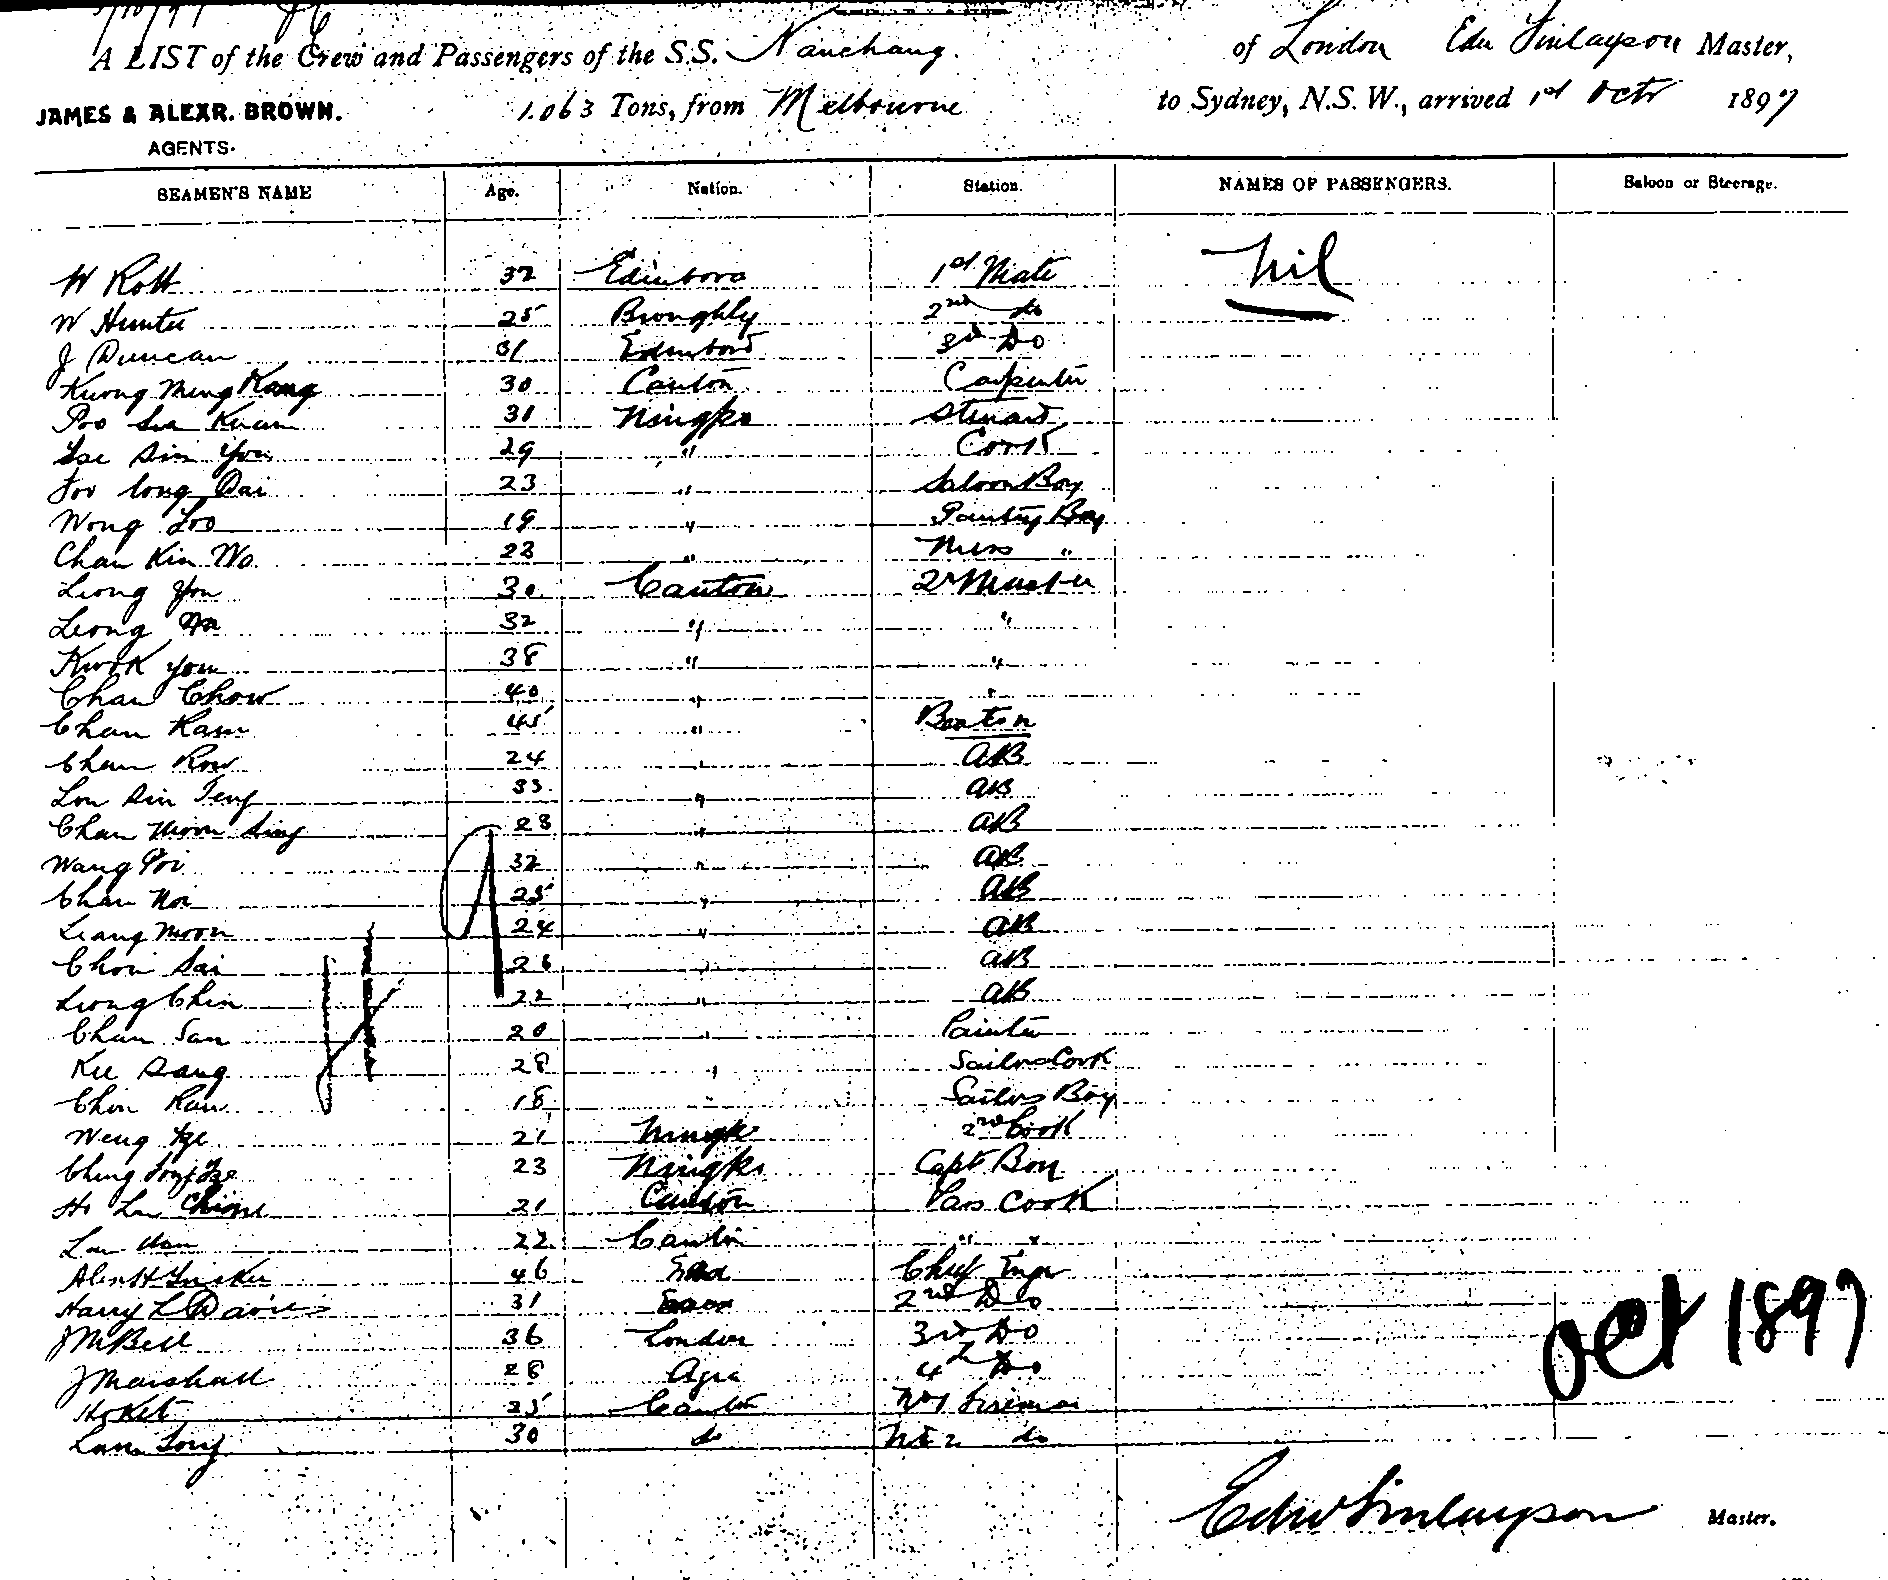 A LIST of the Crew and Passengers of the S.S. Nanchang. of London Edw Finlayson Master,
JAMES & ALEXR. BROWN. 1.063 Tons, from Melbourne to Sydney, N.S.W., arrived 1st Octr 1897
AGENTS.
SEAMEN'S NAME Age. Nation. Station. NAMES OF PASSENGERS. Saloon or Steerage.
W 32 Edinboro 1st Mate Nil
W Hunter 25 Broughty 2nd do
J Duncan 31 Edinboro 3rd Do
Kwong Ming Kang 30 Canton Carpenter
Poo Kuan 31 Ningpo Steward
Sin You 29 " Cook
Foo long Dai 23 " Saloon Boy
Wong Foo 19 " Pantry Boy
Chan Kin Wo 22 " Mess "
Leong You 30 Canton 2r Master
Leong 32 " "
Kwok You 38 " "
Chan Chow 40 " "
Chan Kam 45 " Boatsn
Chan Row 24 " AB
Lou Sin Teng 33 " AB
Chan Moon Sing 28 " AB
Wang Poi 32 " AB
Chan Noi 25 " AB
Leang Moon 24 " AB
Choi Sai 26 " AB
Leong Chin 22 " AB
Chan San 20 " Painter
Kee Sang 28 " Sailors Cook
Chon Kan 18 " Sailors Boy
Weng Tze 21 Ningpo 2nd Cook
Ching 23 Ningpo Capt Boy
Ho 21 Canton Pass Cook
Lau 22 Canton " "
46 Chief Engr
Harry L Davies 31 2nd Do
J M Bell 36 London 3rd Do
J Marshall 28 Agra 4th Do
Ho Ket 25 Canton No 1 Fireman
Lam Tong 30 do No 2 do
Oct 1897
Edw Finlayson Master.